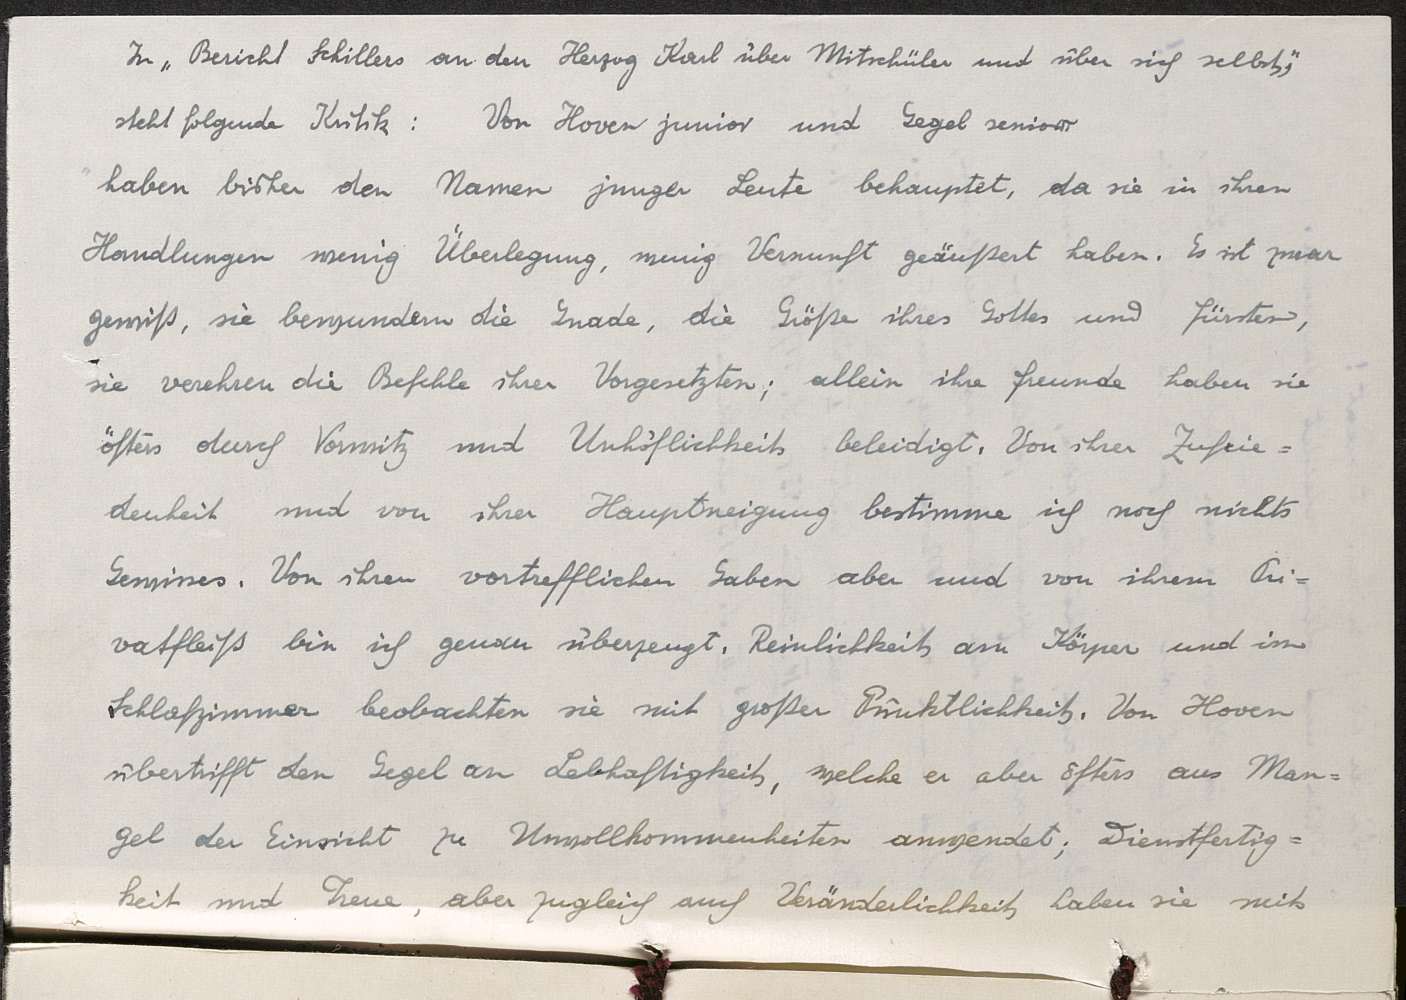 In „Bericht Schillers an den Herzog Karl über Mitschüler und über sich selbst“,
steht folgende Kritik: Von Hoven junior und Gegel senior
haben bisher den Namen junger Leute behauptet, da sie in ihren
Handlungen wenig Überlegung, wenig Vernunft geäußert haben. Es ist zwar
gewiß, sie bewundern die Gnade, die Größe ihres Gottes und Fürsten,
sie verehren die Befehle ihrer Vorgesetzten; allein ihre Freunde haben sie
öfters durch Vorwitz und Unhöflichkeit beleidigt. Von ihrer Zufrie=
denheit und von ihrer Hauptneigung bestimme ich noch nichts
Gewisses. Von ihren vortrefflichen Gaben aber und von ihrem Pri=
vatfleiß bin ich genau überzeugt. Reinlichkeit am Körper und im
Schlafzimmer beobachten sie mit großer Pünktlichkeit. Von Hoven
übertrifft den Gegel an Lebhaftigkeit, welche er aber öfters aus Man=
gel der Einsicht zu Unvollkommenheiten anwendet; Dienstfertig=
keit und Treue, aber zugleich auch Veränderlichkeit haben sie mit